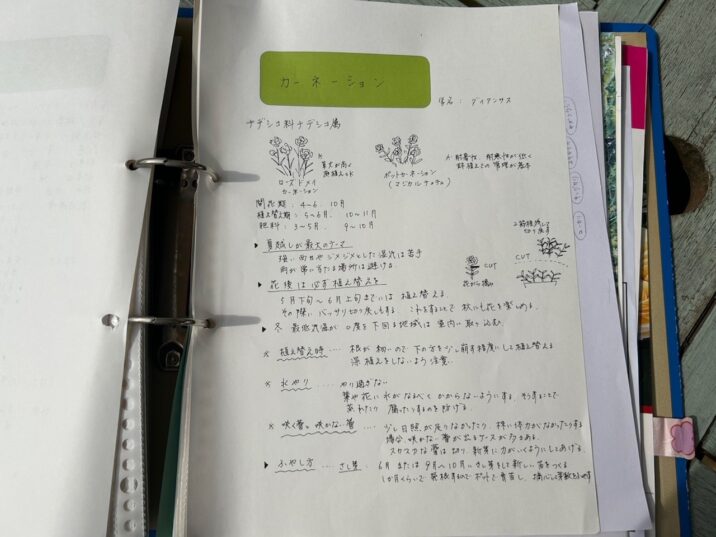 カーネーション
学名 : ダイアンサス
ナデシコ科ナデシコ属
※ 草丈が高く
ローズ ド メイ
カーネーション
ポットカーネーション
(マジカルチュチュ)
☆ 耐暑性、耐寒性が低く
鉢植えでの管理が基本
開花期 : 4~6. 10月
植え替え期 : 5~6月. 10~11月
肥料 : 3~5月. 9~10月
▶ 夏越しが最大のテーマ
強い雨やジメジメとした湿気は苦手
雨が常に当たる場所は避ける.
▶ 花後は必ず植え替えを
5月下旬~6月上旬までには植え替える
その際にバッサリ切り戻しもする これをすることで秋にも花を楽しめる.
▶ 冬 最低気温が0度を下回る地域は室内に取り込む.
2節残して
切り戻す
CUT
花がら摘み
CUT
※ 植え替え時 .... 根が細いので下の方を少し崩す程度にして植え替える
深植えをしないよう注意.
※ 水やり ..... やり過ぎない
葉や花に水がなるべくかからないようにする. そうすることで
蒸れたり 腐ったりするのを防げる.
※ 咲く蕾と咲かない蕾 .... 少し日照が足りなかったり、株に体力がなかったりする
場合、咲かない蕾が出るケースが多々ある.
スカスカな蕾は切り、新芽に力がいくようにしてあげる.
▶ ふやし方 .... さし芽. 6月または9月~10月にさし芽をして新しい苗をつくる
1か月くらいで発根するのでポットで育苗し、摘心して